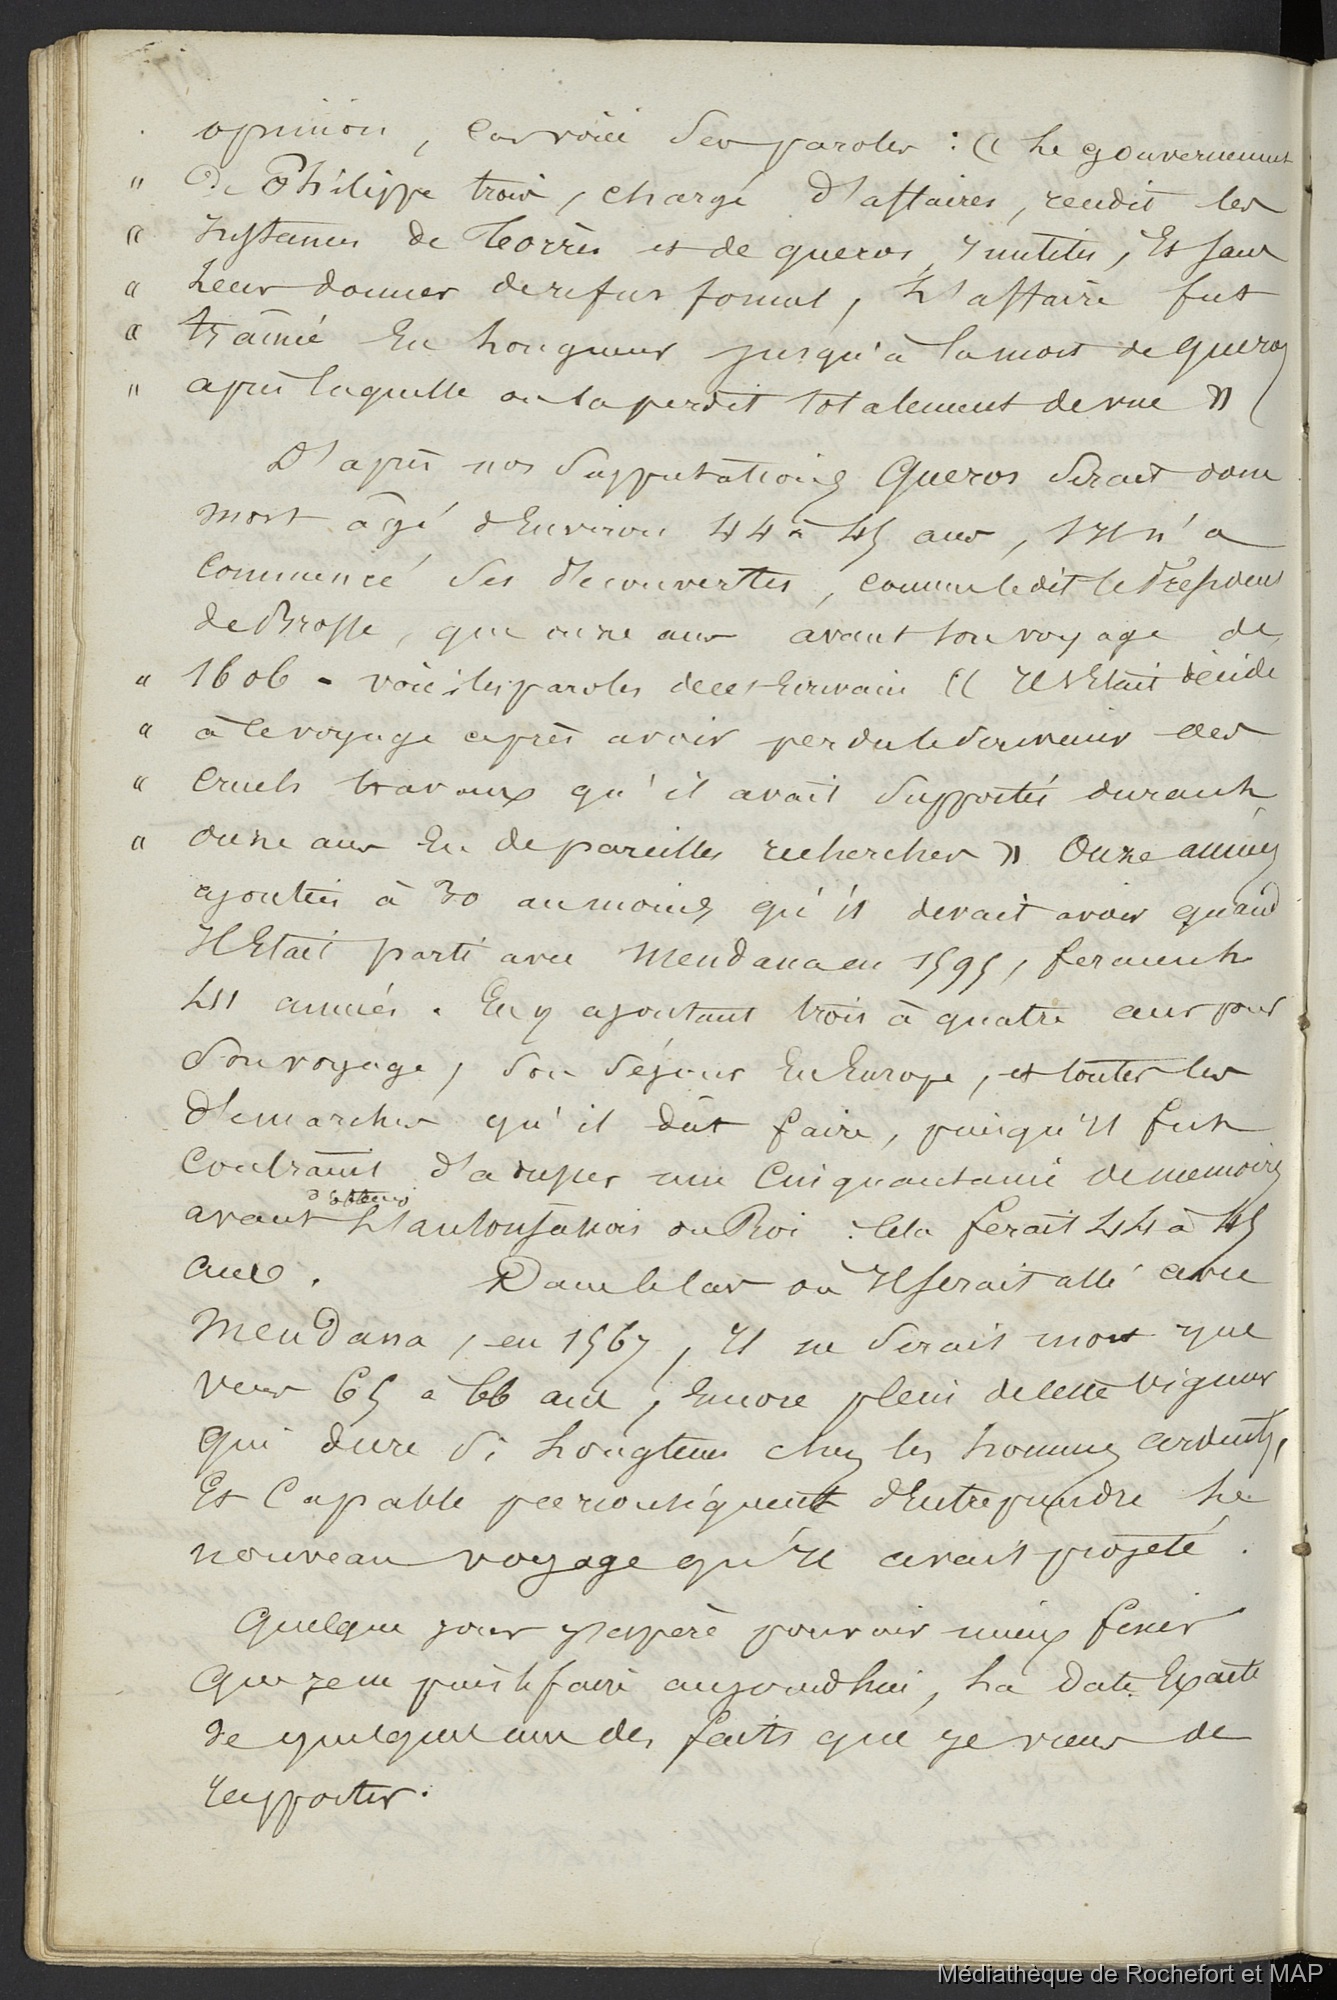 opinion, car voici ses paroles : « Le gouvernement
" De Philippe trois, chargé d'affaires, rendit les
" Instances de Torrès et de queros, Inutiles, Et sans
" Leur donner de refus formel, L'affaire fut
" trainée En Longueur jusqu'à la mort de queros
" après laquelle on la perdit totalement de vue »
D'après nos supputations Queros serait donc
mort âgé d'Environ 44 à 45 ans, s'Il n'a
Commencé ses découvertes, comme le dit le Président
de Brosse, que onze ans avant son voyage de
" 1606 - voici les paroles de cet Ecrivain « Il s'Etait décidé
" à ce voyage après avoir perdu le souvenir des
" Cruels travaux qu'il avait supportés durant
" onze ans En de pareilles recherches » Onze années
ajoutées à 30 au moins, qu'il devait avoir quand
Il Etait parti avec Mendana en 1595, feraient
41 années. En y ajoutant trois à quatre ans pour
son voyage, son séjour En Europe, et toutes les
démarches qu'il dût faire, puisqu'Il fut
Contraint d'adresser une Cinquantaine de memoires
avant d'obtenir L'autorisation du Roi : Cela ferait 44 à 45
ans. Dans le cas où Il serait allé avec
Mendana, en 1567, Il ne serait mort que
vers 65 à 66 ans, Encore plein de cette vigueur
qui dure si Longtems chez les hommes ardents,
Et Capable par conséquent d'Entreprendre Le
nouveau voyage qu'Il avait projeté.
Quelque jour j'espère pouvoir mieux fixer
que je ne puis le faire aujourd'hui, La date Exacte
de quelques uns des faits que je viens de
rapporter.
Médiathèque de Rochefort et MAP